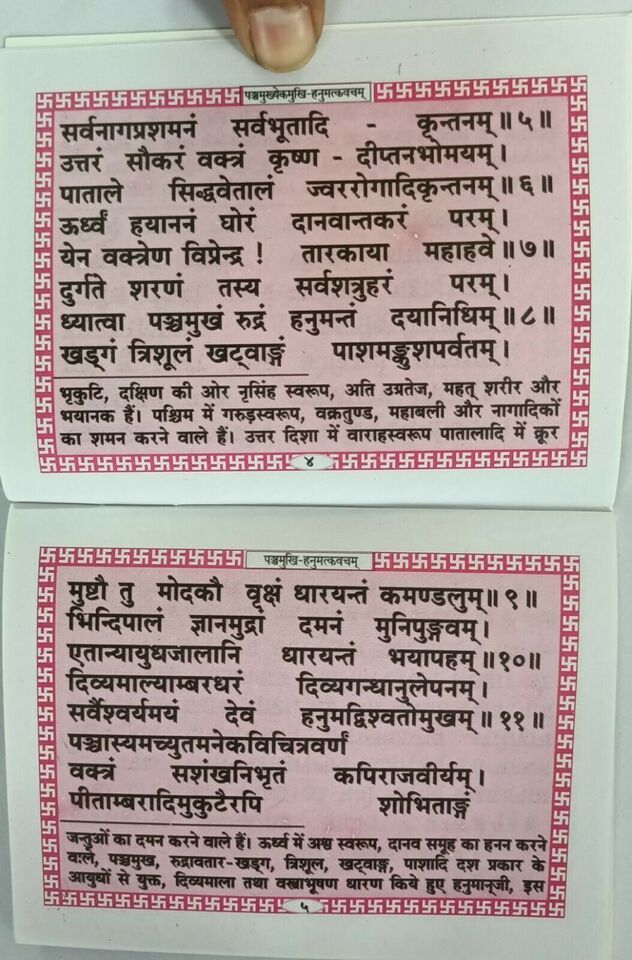 पञ्चमुख्येकमुखि-हनुमत्कवचम्
सर्वनागप्रशमनं सर्वभूतादि - कृन्तनम्॥५॥
उत्तरं सौकरं वक्त्रं कृष्ण - दीप्तनभोमयम्।
पाताले सिद्धवेतालं ज्वररोगादिकृन्तनम्॥६॥
ऊर्ध्वं हयाननं घोरं दानवान्तकरं परम्।
येन वक्त्रेण विप्रेन्द्र ! तारकाया महाहवे॥७॥
दुर्गते शरणं तस्य सर्वशत्रुहरं परम्।
ध्यात्वा पञ्चमुखं रुद्रं हनुमन्तं दयानिधिम्॥८॥
खड्गं त्रिशूलं खट्वाङ्गं पाशमङ्कुशपर्वतम्।
भृकुटि, दक्षिण की ओर नृसिंह स्वरूप, अति उग्रतेज, महत् शरीर और
भयानक हैं। पश्चिम में गरुड़स्वरूप, वक्रतुण्ड, महाबली और नागादिकों
का शमन करने वाले हैं। उत्तर दिशा में वाराहस्वरूप पातालादि में क्रूर
४
पञ्चमुखि-हनुमत्कवचम्
मुष्टौ तु मोदकौ वृक्षं धारयन्तं कमण्डलुम्॥९॥
भिन्दिपालं ज्ञानमुद्रां दमनं मुनिपुङ्गवम्।
एतान्यायुधजालानि धारयन्तं भयापहम्॥१०॥
दिव्यमाल्याम्बरधरं दिव्यगन्धानुलेपनम्।
सर्वैश्वर्यमयं देवं हनुमद्विश्वतोमुखम्॥११॥
पञ्चास्यमच्युतमनेकविचित्रवर्णं
वक्त्रं सशंखनिभृतं कपिराजवीर्यम्।
पीताम्बरादिमुकुटैरपि शोभिताङ्गं
जन्तुओं का दमन करने वाले हैं। ऊर्ध्व में अश्व स्वरूप, दानव समूह का हनन करने
वाले, पञ्चमुख, रुद्रावतार-खड्ग, त्रिशूल, खट्वाङ्ग, पाशादि दश प्रकार के
आयुधों से युक्त, दिव्यमाला तथा वस्त्राभूषण धारण किये हुए हनुमान्‌जी, इस
५